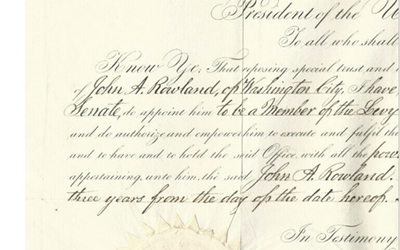 President of the U
To all who shall
Know Ye; That reposing special trust and c
of John A. Rowland, of Washington City, I have
Senate, do appoint him to be a Member of the Levy
and do authorize and empower him to execute and fulfil the
and to have and to hold the said Office, with all the pow
appertaining, unto him, the said John A. Rowland.
three years from the day of the date hereof.
In Testimony